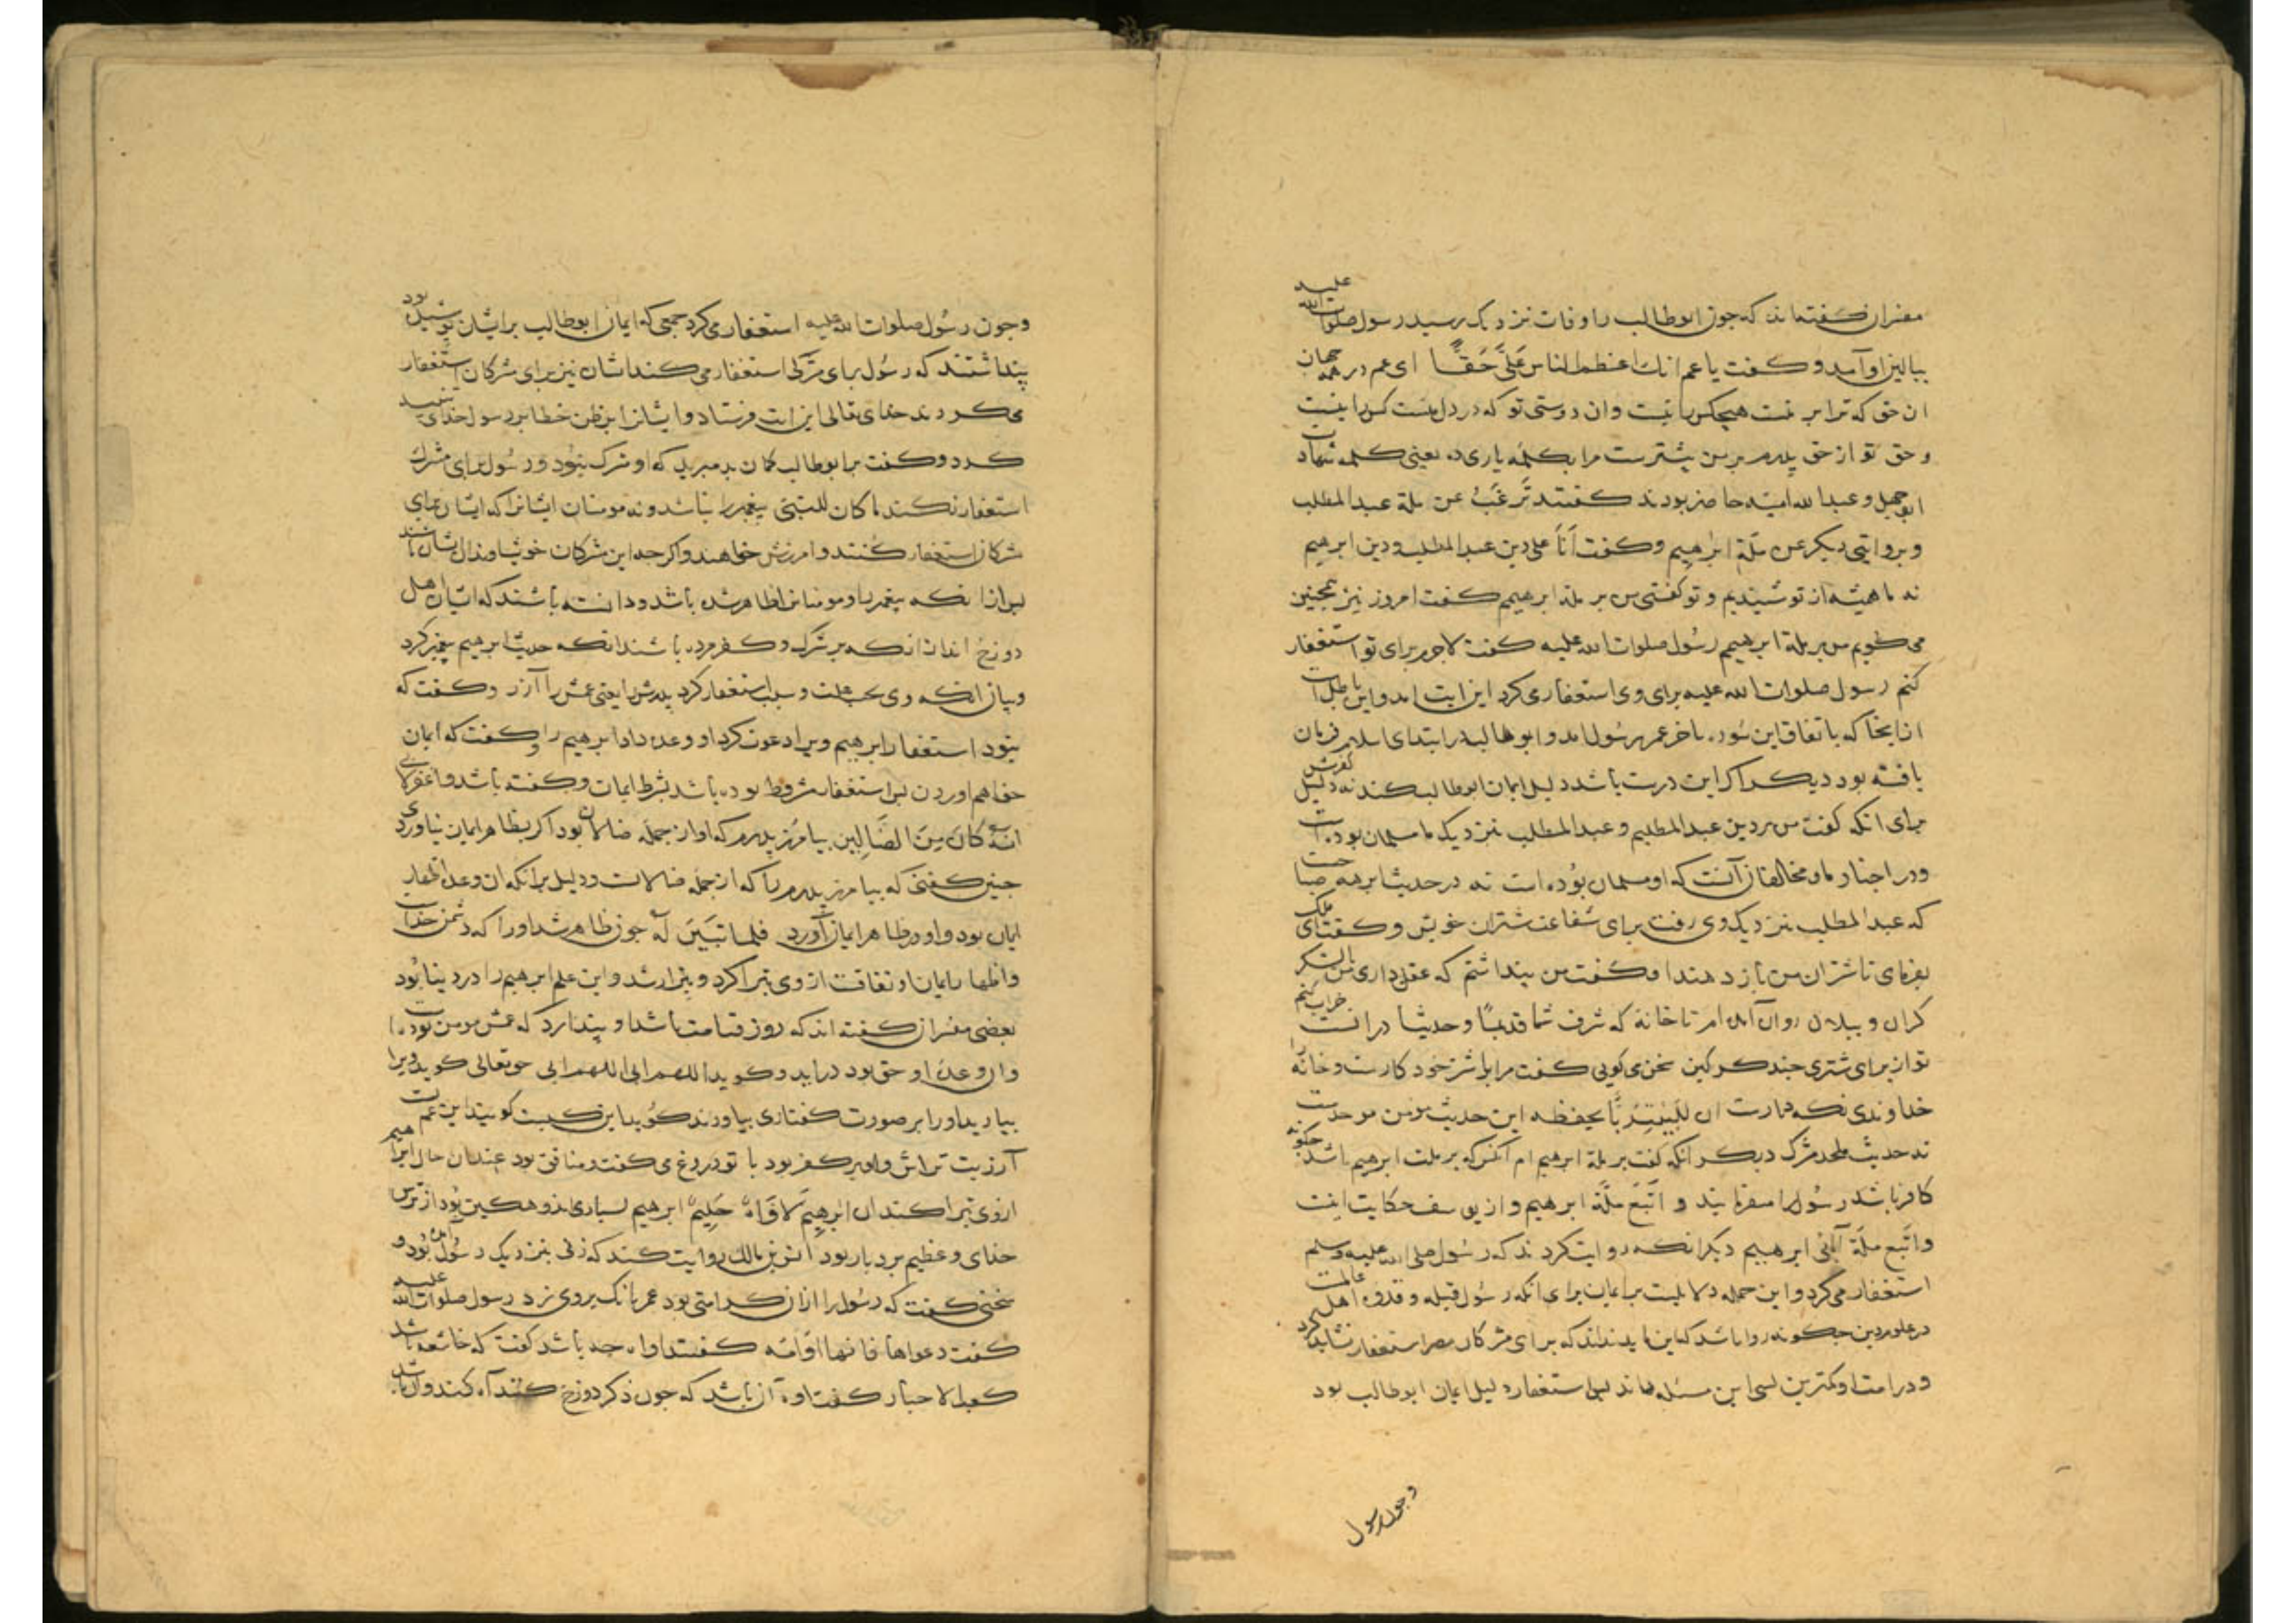 مفسران گفته‌اند که جون ابوطالب را وفات نزدیک رسید رسول صلوات الله علیه
ببالین او آمد و کفت یا عم انك اعظم الناس عَلَیَّ حَقًّا ای عم در همه جهان
ان حق که ترا بر منست هیچکس را نیست وان دوستی تو که در دل منست کس را نیست
و حق تو از حق پدرم بر من بیشترست مرا بکلمه یاری ده یعنی کلمه شهادت
ابوجهل و عبدالله امیه حاضر بودند کفتند تَرغَبُ عن ملة عبدالمطلب
و بروایتی دیکر عن ملّة ابرٰهیم وکفت اَنَا علی دین عبدالمطلب ودین ابرهیم
نه ما همیشه از تو شنیدیم و تو کفتی من بر ملة ابرهیمم کفت امروز نیز همچنین
می کویم من بر ملة ابرهیمم رسُول صلوات الله علیه کفت لاجرم برای تو استغفار
کنم رسول صلوات الله علیه برای وی استغفار می کرد این ایت امد واین باطل است
ازانجا که باتفاق این سُوره باخر عمر رسُول امد و ابوطالب در ابتدای اسلام فرمان
یافته بود دیکر اکر این درست باشد دلیل ایمان ابوطالب کند نه دلیل کفرش
برای انکه کفت من بر دین عبدالمطلبم و عبدالمطلب نزدیک ما مسلمان بوده است
ودر اخبار ما و مخالفان آنست که او مسلمان بوُده است نه در حدیث ابرهه صباحست
که عبدالمطلب نزدیک وی رفت برای شفاعت شتران خویش و کفت ای ملک
بفرمای تا شتران من باز دهند او کفت من پنداشتم که عقلی داری من با لشکر
کران و پیلان روان آمده ام تا خانه که شرف شما قدیمًا و حدیثا در انست خراب کنم
تو از برای شتری چند کرکین سخن می کویی کفت مرا با شتر خود کارست و خانه را
خداوندی نکه دارست ان لِلبَیْتِ رَبًّا یحفظه این حدیث مومن موحدست
نه حدیث ملحد مشرک دیکر انکه کفت بر ملة ابرهیم ام آنکس که بر ملت ابرهیم باشد جکونه
کافر باشد رسُول را میفرمایند و اتَّبَعَ ملَّة ابرهیم و از یوسف حکایت اینست
واتَّبع ملّة آبائی ابرهیم دیکر انکه روایت کردند که رسُول صلی الله علیه وسلم
استغفار می کرد و این جمله دلالیت بر ایمان برای انکه رسُول قبله و قدوه اهل عالمت
در علم و دین جکونه روا باشد که این نداند که برای مشرکان مصر استغفار نشاید کرد
و در امت او کمترین کسی این مسئله داند پس استغفار دلیل ایمان ابوطالب بود
وجون رسول
وجون رسُول صلوات الله علیه استغفار می کرد جمعی که ایمان ابوطالب برایشان پوشیده بود
پنداشتند که رسُول برای مشرکی استغفار می کند ایشان نیز برای مشرکان استغفار
می کردند خدای تعالی این ایت فرستاد و ایشانرا برظن خطا بر رسول خدای تنبیه
کرد و کفت بر ابوطالب کمان بد مبرید که او مشرک نبوُد و رسُول برای مشرک
استغفار نکند ما کان للنبی پیغمبر را نباشد ونه مومنان ایشانرا که ایشان برای
مشرکان استغفار کُنند و امرزش خواهند و اکر جه این مشرکان خویشاوندان ایشان باشند
پس از انکه پیغمبر را و مومنان را ظاهر شده باشد و دانسته باشند که ایشان اهل
دوزخ اند از انکه بر شرک و کفر مرده باشند انکه حدیث ابرهیم پیغمبر کرد
وبیان انکه وی بچه علت و سبب استغفار کرد پدرش را یعنی عمش را آزر و کفت که
نبود استغفار ابرهیم ویرا دعوت کرد او وعده داد ابرهیم را و کفت که ایمان
خواهم اوردن پس استغفار مشروط بوده باشد بشرط ایمان و کفته باشد و اغفر لابی
انه کَانَ مِنَ الضَّالِین بیامُرز پدرم که او از جمله ضالان بود اکر بظاهر ایمان نیاوردی
جنین کفتی که بیامرز پدرم را که از جمله ضالانست و دلیل بر انکه ان وعده اظهار
ایمان بود و او در ظاهر ایمان آورد فلما تَبَیَنَ لَهُ جون ظاهر شد او را که دشمن خداست
واظهار ایمان او نفاقست از وی تبرا کرد و بیزار شد و این علم ابرهیم را در دنیا بُود
بعضی مفسران کفته اند که روز قیامت باشد او پندارد که عمش مومن بوده است
وان وعده او حق بود در آید و کوید اللهم ابی اللهم ابی حق تعالی کوید ویرا
بیارید او را بر صورت کفتاری بیاورند کوُید این کیست کویند این عمست
آزر بت تراش و او بر کفر بود با تو دروغ می کفت و منافق بود عند ان حال ابراهیم
از وی تبرا کند ان ابرٰهیمَ لَاَوَّاهٌ حَلِیمٌ ابرهیم بسیار اندوهکین بُود از ترس
خدای و عظیم بردبار بود انس بن مالک روایت کند که زنی بنزدیک رسُول آمده بُود و
سخنی کفت که رسُول را ازان کرامتی بود عمر بانک بر وی زد رسول صلوات الله علیه
کفت دعوها فانها اوّاهة کفتند اواه جه باشد کفت که خاشعه باشد
کعب الاحبار کفت اوه آن باشد که جون ذکر دوزخ کنند آه کند و ان باشد